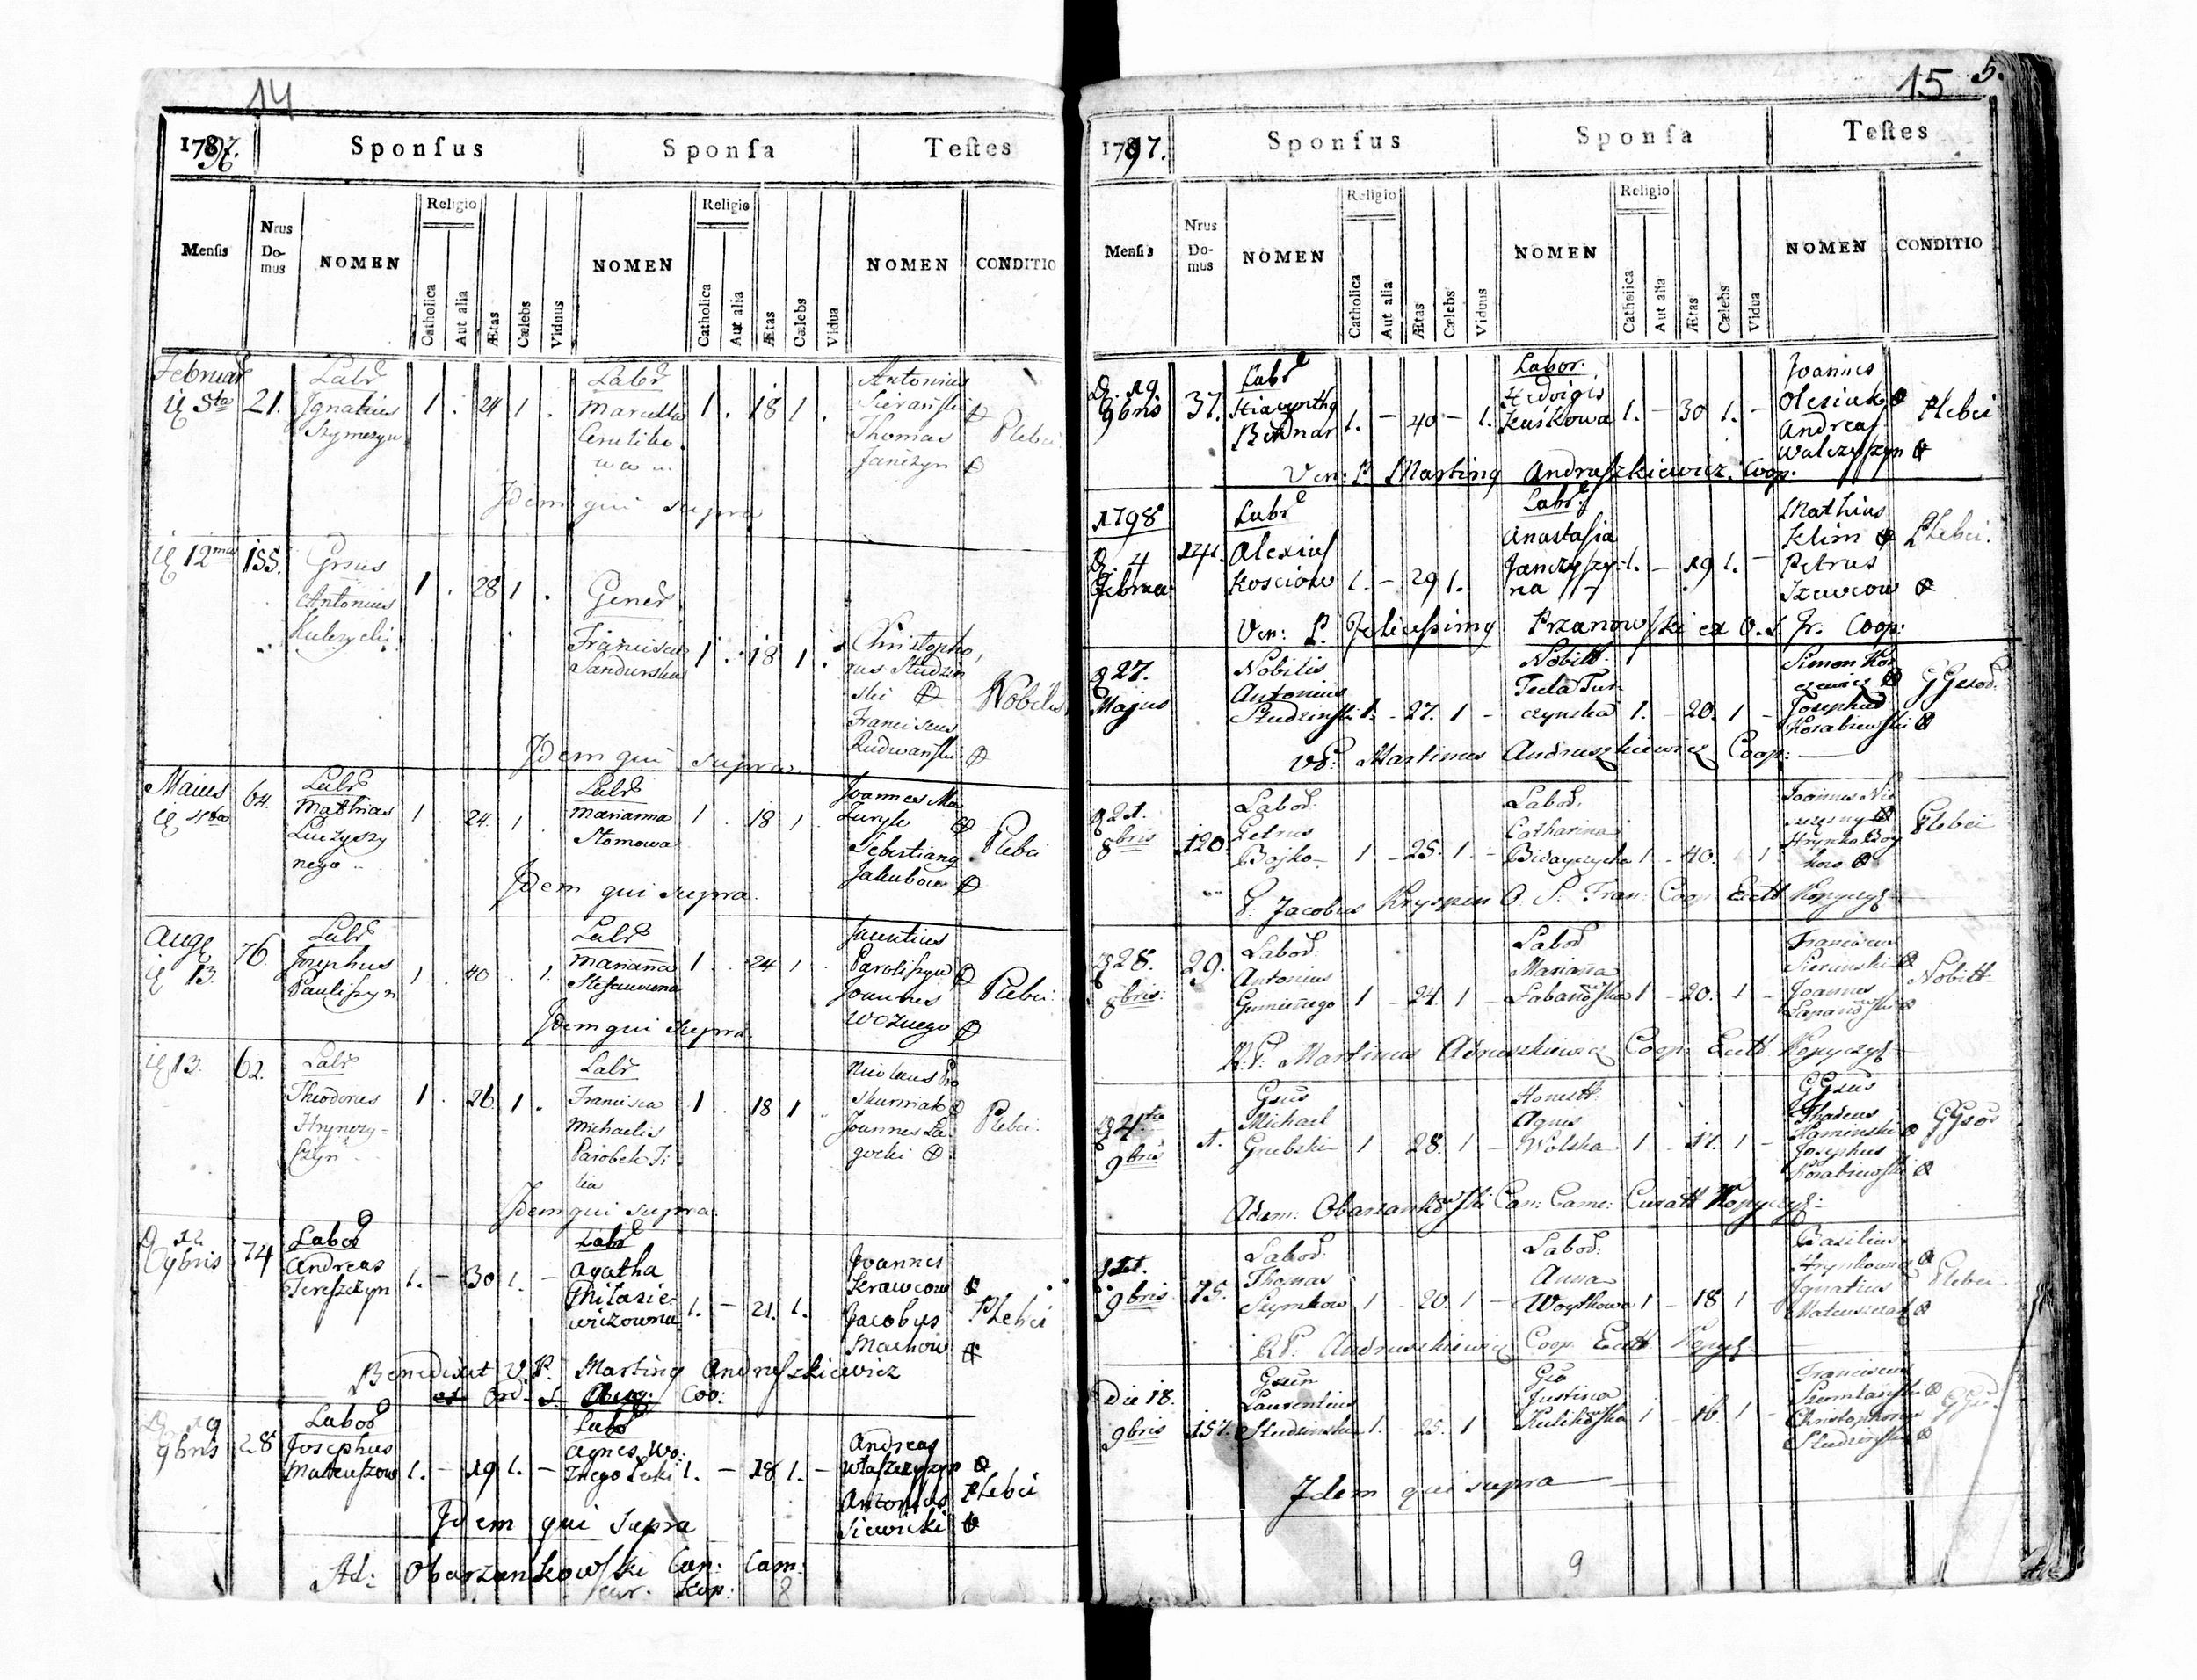 14
1797.
Sponsus
Sponsa
Testes
Mensis
Nrus Do-mus
NOMEN
Religio
Catholica
Aut alia
Ætas
Cælebs
Viduus
NOMEN
Religio
Catholica
Aut alia
Ætas
Cælebs
Vidua
NOMEN
CONDITIO
Februar
21.
Labr
Ignatius
1 . 24 1 .
Labr
Marcella
1 . 18 1 .
Antonius
Sieranski
Thomas
Janczyn
Plebei
Idem qui supra
12ma
155.
Grsus
Antonius
Kulczycki
1 . 28 1 .
Gener
Francisca
Sandurska
1 . 18 1 .
Christopho,
rus Studzin
ski
Franciscus
Rudwanski
Nobiles
Idem qui supra.
Maius
64.
Labr
Mathias
Luczyszy
nego
1 . 24. 1 .
Labr
Marianna
Slomowa
1 . 18 1
Joannes Ma
zuryk
Sebestiang
Jakubow
Plebei
Idem qui supra.
Aug
13.
76.
Labr
Josephus
Pauliszyn
1 . 40 . 1.
Labr
Marianna
1 . 24 1 .
Joannes
Woznego
Plebei
Idem qui supra
13.
62.
Labr
Theodorus
Hrynczy=
szyn
1 . 26 1 .
Labr
Francisca
Michaelis
Parobek Fi
lia
1 . 18 1
Nicolaus Pro
skurniak
Joannes La
gocki
Plebei
Idem qui supra.
9bris
74
Labor
Andreas
Tereszczyn
1. - 30 1. -
Labr
Agatha
Philasie-
wiczowna
1. - 21. 1.
Joannes
Krawcow
Jacobus
Machow
Plebei
Benedixit V. P. Marting Andruszkiewicz
ex Ord. S. Aug: Coo:
D. 19
9bris
28
Labor
Josephus
Mateuszow
1. - 19 1. -
Labr
Agnes Wo:
znego
1. - 18 1. -
Andreas
Wlaszczyszyn
Antonius
Siewicki
Plebei
Idem qui supra
Ad: Obarzankowski Can: Cam:
cur. Kop:
8
15
5.
1797.
Sponsus
Sponsa
Testes
Mensis
Nrus Do-mus
NOMEN
Religio
Catholica
Aut alia
Ætas
Cælebs
Viduus
NOMEN
Religio
Catholica
Aut alia
Ætas
Cælebs
Vidua
NOMEN
CONDITIO
D. 19
9bris
37.
Labr
Hiacynthg
Bednar
1. - 40 - 1.
Labor.
Hedvigis
Kuśkowa
1. - 30 1. -
Joannes
Olesiuk
Andreas
Walczyszyn
Plebei
Ven: P. Marting Andruszkiewicz Coop:
1798
D. 4
Februa
174.
Labr
Alexius
Kosciow
1. - 29 1.
Labr
Anastasia
Janczyszy
na
1. - 19 1. -
Mathias
Klim
Petrus
Szewcow
Plebei.
Ven: P. Felicissimg Przanowski ex O. S. Fr. Coop:
27.
Majus
Nobilis
Antonius
Studzinski
1. - 27. 1 -
Nobilt
Tecla Tur
czynska
1. - 20. 1 -
Simon Kor
czewicz
Josephus
Korabiewski
GGrsod
VP: Martinus Andruszkiewicz Coop:
21.
8bris
120
Labor.
Petrus
Bojko
1 - 25. 1 -
Labor.
Catharina
1 - 40. 1
Joannes Nie
szczęsny
Hrynko Boy
kow
Plebei
P. Jacobus Kryspin O. S. Fran: Coop Eccl Kopyczyn
28.
8bris
29.
Labor.
Antonius
1 - 24. 1 -
Labor
Marianna
Labanowska
1 - 20. 1 -
Franciscus
Sieranski
Joannes
Nobilt
R. P. Martinus Adruszkiewicz Coop: Eccl Kopyczyn
4ta
9bris
1.
Gsus
Michael
Grubski
1 28. 1 -
Honestt.
Agnes
Wolska
1 - 17. 1 -
GGsus
Thadeus
Kaminski
Josephus
Korabiewski
GGsor
Adam: Obarzankowski Can: Came: Curatt Kopyczyn
9bris
75.
Labor.
Thomas
Szymkow
1 - 20. 1 -
Labor.
Anna
Woytkowa
1 - 18 1
Basilius
Ignatius
Plebei
R P: Andruszkiewicz Coop: Eccl
Die 18.
9bris
157.
Gsun
Laurentius
Studzinski
1. - 25. 1
Gsa
Justina
Kulikowska
1 16. 1 -
Franciscus
Christophorus
Studzinski
Idem qui supra
9